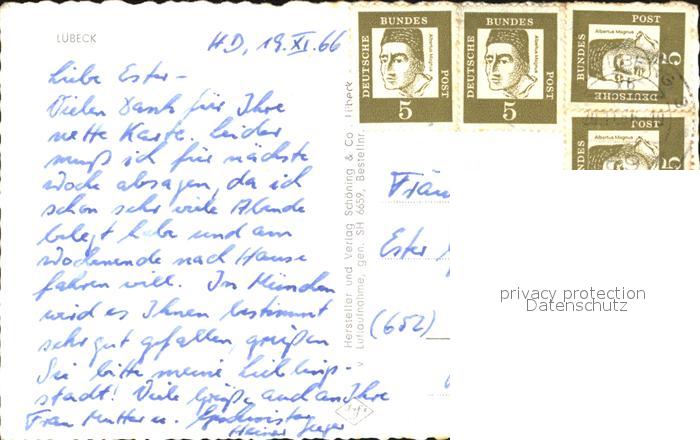 LÜBECK
HD, 19. XI. 66
Liebe Ester –
Vielen Dank für Ihre
nette Karte. Leider
muß ich für nächste
Woche absagen, da ich
schon sehr viele Abende
belegt habe und am
Wochenende nach Hause
fahren will. In München
wird es Ihnen bestimmt
sehr gut gefallen, grüßen
Sie bitte meine Lieblings-
stadt! Viele Grüße, auch an Ihre
Frau Mutter u. Geschwister
Heiner
Hersteller und Verlag Schöning & Co Lübeck
Luftaufnahme, gen. SH 6659, Bestellnr.
Agfa
DEUTSCHE BUNDES POST
Albertus Magnus
5
DEUTSCHE BUNDES POST
Albertus Magnus
5
DEUTSCHE BUNDES POST
Albertus Magnus
5
POST
BUNDES
Albertus Magnus
5
Fräu
Ester
(652)
privacy protection
Datenschutz